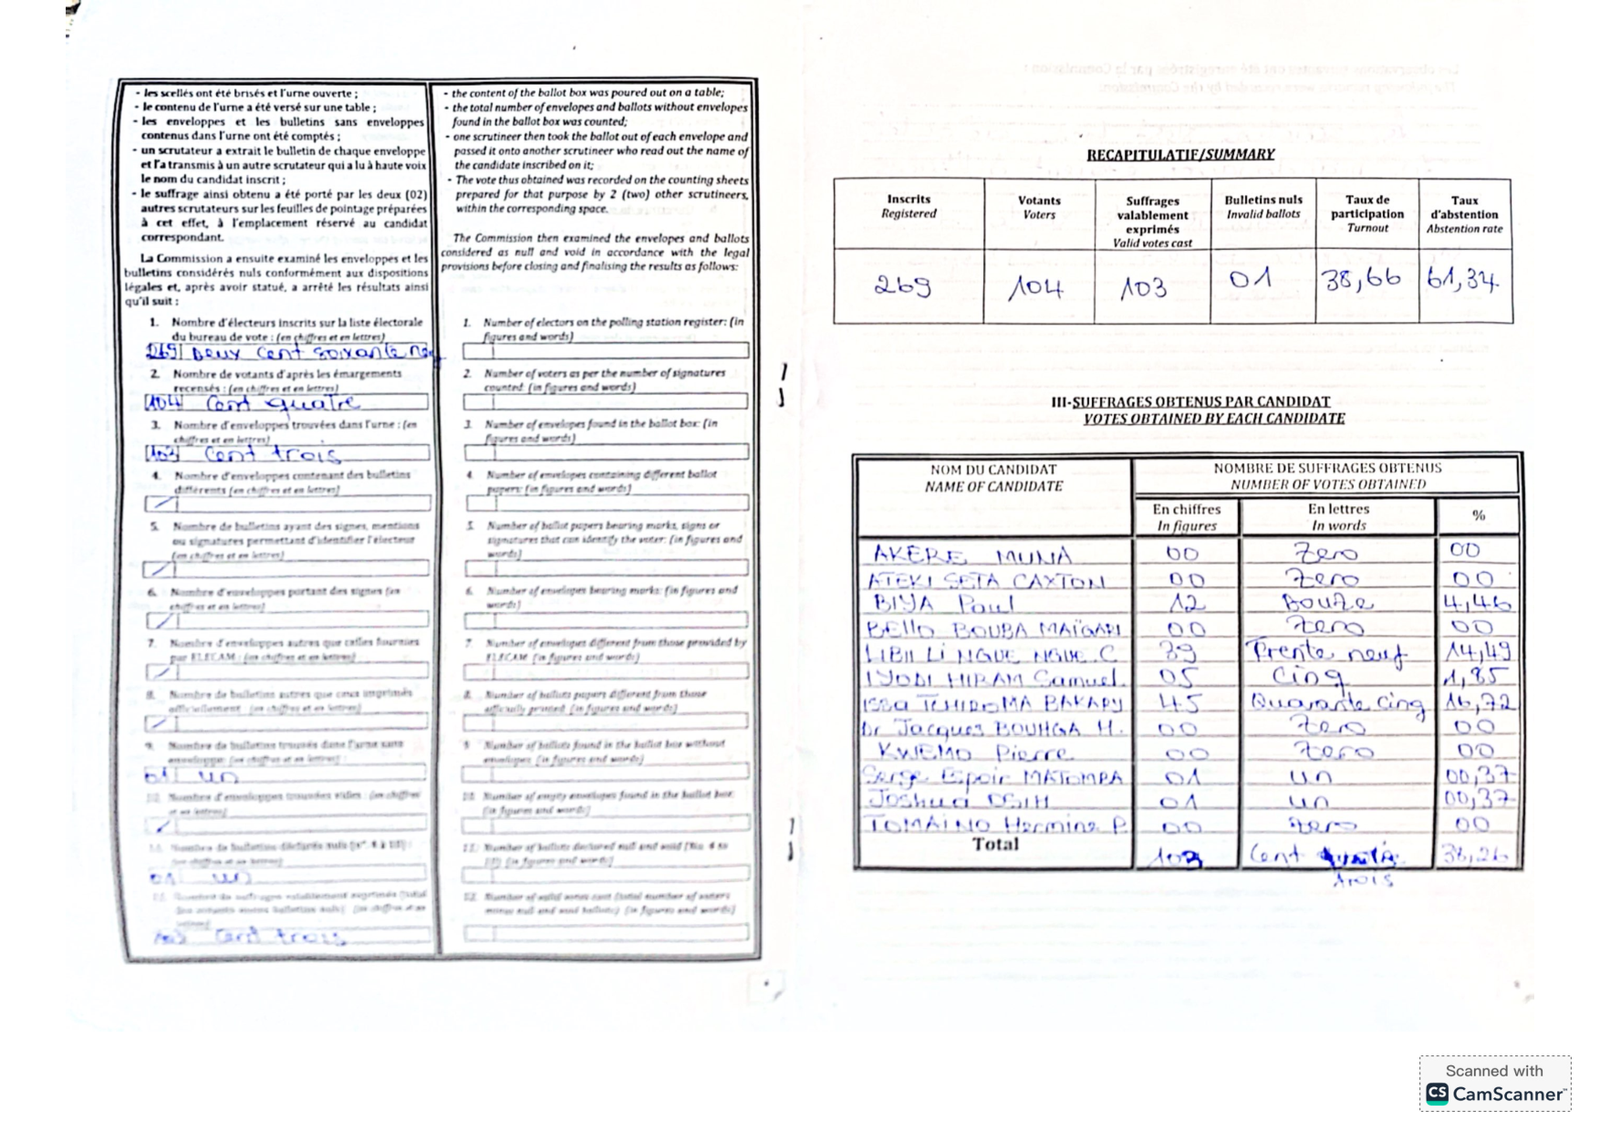 - les scellés ont été brisés et l'urne ouverte ;
- le contenu de l'urne a été versé sur une table ;
- les enveloppes et les bulletins sans enveloppes
contenus dans l'urne ont été comptés ;
- un scrutateur a extrait le bulletin de chaque enveloppe
et l'a transmis à un autre scrutateur qui a lu à haute voix
le nom du candidat inscrit ;
- le suffrage ainsi obtenu a été porté par les deux (02)
autres scrutateurs sur les feuilles de pointage préparées
à cet effet, à l'emplacement réservé au candidat
correspondant.
La Commission a ensuite examiné les enveloppes et les
bulletins considérés nuls conformément aux dispositions
légales et, après avoir statué, a arrêté les résultats ainsi
qu'il suit :
1. Nombre d'électeurs inscrits sur la liste électorale
du bureau de vote : (en chiffres et en lettres)
269 Deux cent soixante
2. Nombre de votants d'après les émargements
recensés : (en chiffres et en lettres)
104 Cent quatre
3. Nombre d'enveloppes trouvées dans l'urne : (en
chiffres et en lettres)
103 Cent trois
4. Nombre d'enveloppes contenant des bulletins
différents (en chiffres et en lettres)
5. Nombre de bulletins ayant des signes, mentions
ou signatures permettant d'identifier l'électeur
(en chiffres et en lettres)
6. Nombre d'enveloppes portant des signes (en
chiffres et en lettres)
7. Nombre d'enveloppes autres que celles fournies
par ELECAM : (en chiffres et en lettres)
8. Nombre de bulletins autres que ceux imprimés
officiellement : (en chiffres et en lettres)
9. Nombre de bulletins trouvés dans l'urne sans
enveloppe: (en chiffres et en lettres)
01 un
10. Nombre d'enveloppes trouvées vides : (en chiffres
et en lettres)
11. Nombre de bulletins déclarés nuls
(en chiffres et en lettres)
01 un
12. Nombre de suffrages valablement exprimés
103 Cent trois
- the content of the ballot box was poured out on a table;
- the total number of envelopes and ballots without envelopes
found in the ballot box was counted;
- one scrutineer then took the ballot out of each envelope and
passed it onto another scrutineer who read out the name of
the candidate inscribed on it;
- The vote thus obtained was recorded on the counting sheets
prepared for that purpose by 2 (two) other scrutineers,
within the corresponding space.
The Commission then examined the envelopes and ballots
considered as null and void in accordance with the legal
provisions before closing and finalising the results as follows:
1. Number of electors on the polling station register: (in
figures and words)
2. Number of voters as per the number of signatures
counted: (in figures and words)
3. Number of envelopes found in the ballot box: (in
figures and words)
4 Number of envelopes containing different ballot
papers: (in figures and words)
5. Number of ballot papers bearing marks, signs or
signatures that can identify the voter: (in figures and
words)
6. Number of envelopes bearing marks: (in figures and
words)
7 Number of envelopes different from those provided by
ELECAM (in figures and words)
8. Number of ballots papers different from those
officially printed (in figures and words)
9 Number of ballots found in the ballot box without
envelopes (in figures and words)
10. Number of empty envelopes found in the ballot box:
(in figures and words)
11. Number of ballots declared null and void
(in figures and words)
12. Number of valid votes cast (total number of voters
minus null and void ballots) (in figures and words)
RECAPITULATIF/SUMMARY
Inscrits Votants Suffrages Bulletins nuls Taux de Taux
Registered Voters valablement Invalid ballots participation d'abstention
exprimés Turnout Abstention rate
Valid votes cast
269 104 103 01 38,66 61,34
III-SUFFRAGES OBTENUS PAR CANDIDAT
VOTES OBTAINED BY EACH CANDIDATE
NOM DU CANDIDAT NOMBRE DE SUFFRAGES OBTENUS
NAME OF CANDIDATE NUMBER OF VOTES OBTAINED
En chiffres En lettres %
In figures In words
AKERE MUNA 00 Zero 00
ATEKI SETA CAXTON 00 Zero 00
BIYA Paul 12 Douze 4,46
BELLO BOUBA MAÏGARI 00 Zero 00
LIBII LI NGUE NGUE C 39 Trente neuf 14,49
IYODI HIRAM Samuel 05 Cinq 1,85
ISSA TCHIROMA BAKARY 45 Quarante cinq 16,72
Dr Jacques BOUHGA H. 00 Zero 00
KWEMO Pierre 00 Zero 00
Serge Espoir MATOMBA 01 un 00,37
Joshua OSIH 01 un 00,37
TOMAINO Hermine P. 00 Zero 00
Total 103 Cent 38,26
trois
Scanned with
CS CamScanner